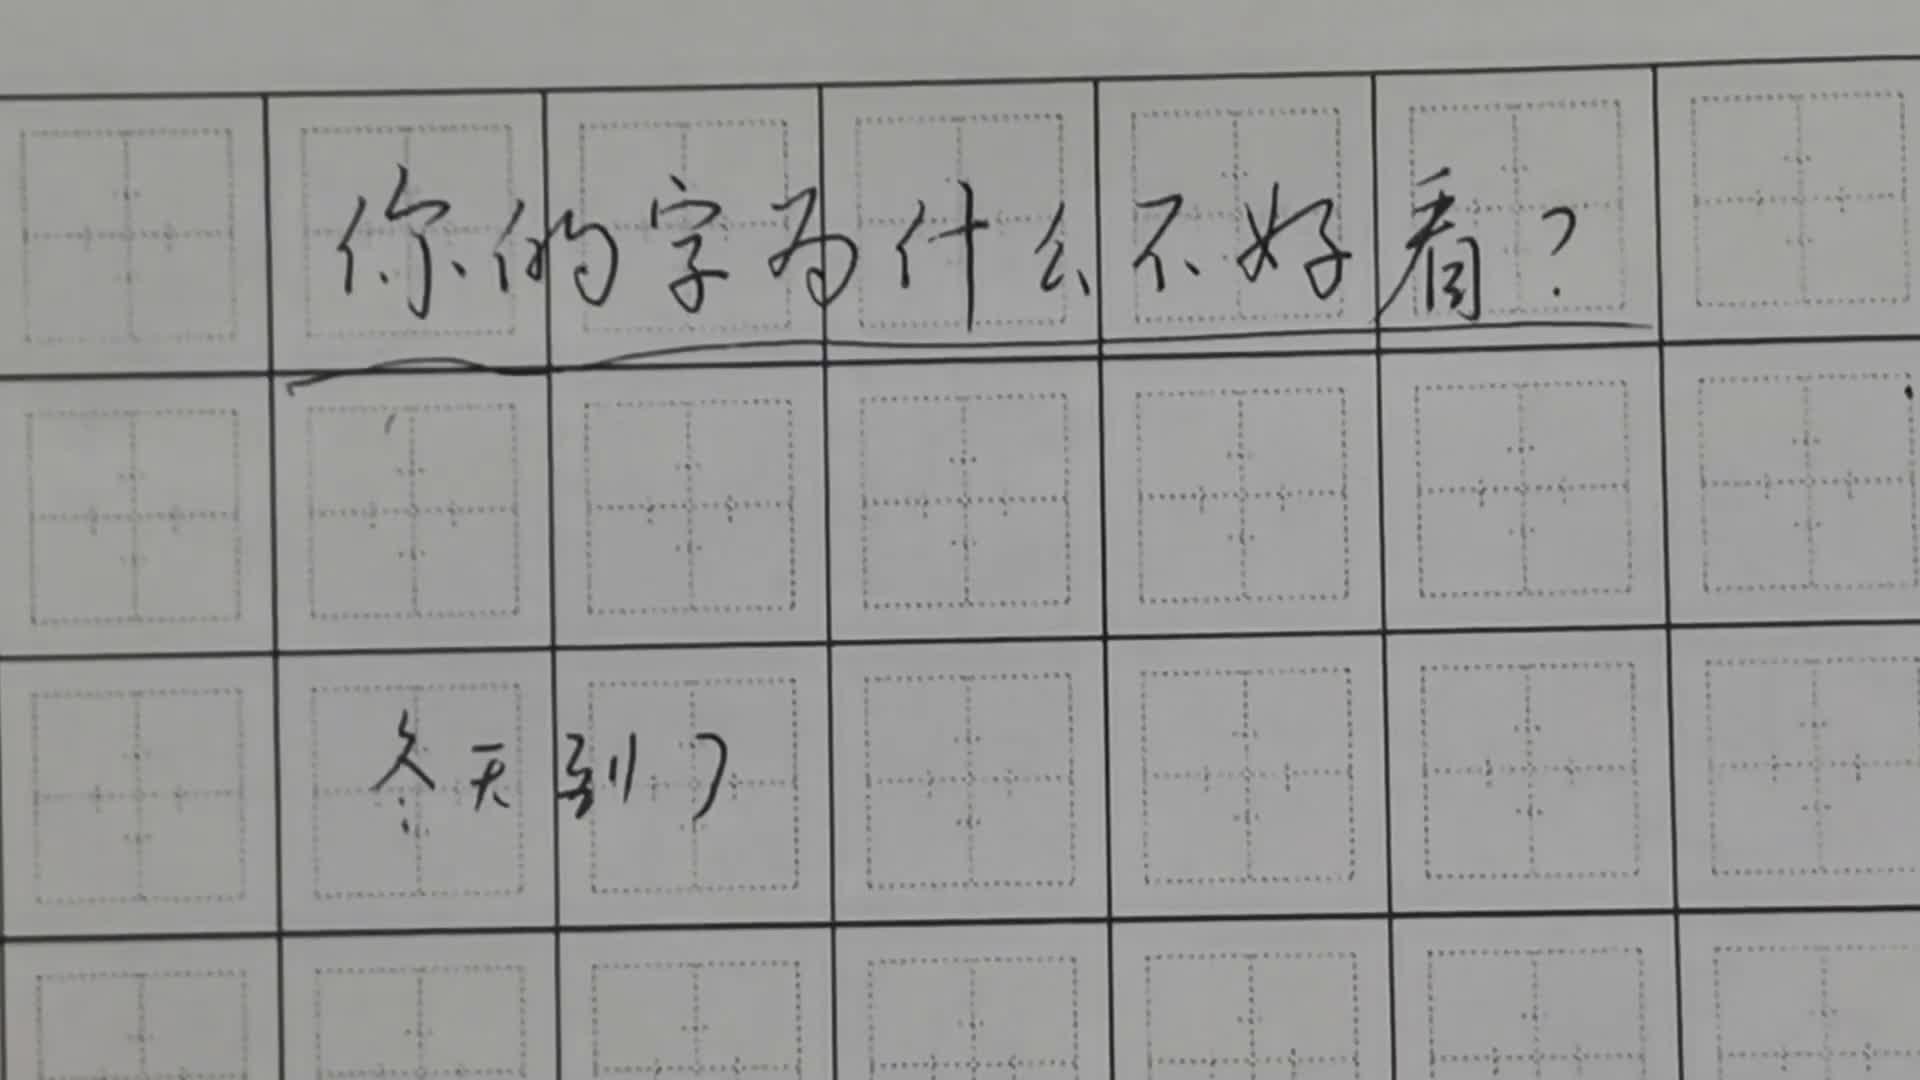 你的字为什么不好看?
今天到了